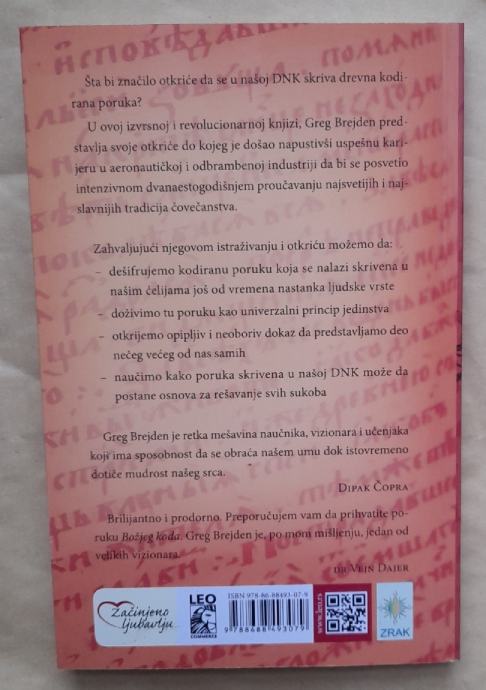 Šta bi značilo otkriće da se u našoj DNK skriva drevna kodi-
rana poruka?
U ovoj izvrsnoj i revolucionarnoj knjizi, Greg Brejden pred-
stavlja svoje otkriće do kojeg je došao napustivši uspešnu kari-
jeru u aeronautičkoj i odbrambenoj industriji da bi se posvetio
intenzivnom dvanaestogodišnjem proučavanju najsvetijih i naj-
slavnijih tradicija čovečanstva.
Zahvaljujući njegovom istraživanju i otkriću možemo da:
– dešifrujemo kodiranu poruku koja se nalazi skrivena u
našim ćelijama još od vremena nastanka ljudske vrste
– doživimo tu poruku kao univerzalni princip jedinstva
– otkrijemo opipljiv i neoboriv dokaz da predstavljamo deo
nečeg većeg od nas samih
– naučimo kako poruka skrivena u našoj DNK može da
postane osnova za rešavanje svih sukoba
Greg Brejden je retka mešavina naučnika, vizionara i učenjaka
koji ima sposobnost da se obraća našem umu dok istovremeno
dotiče mudrost našeg srca.
Dipak Čopra
Brilijantno i prodorno. Preporučujem vam da prihvatite po-
ruku Božjeg koda. Greg Brejden je, po mom mišljenju, jedan od
velikih vizionara.
dr Vejn Dajer
Začinjeno
ljubavlju...
LEO
COMMERCE
ISBN 978-86-88493-07-9
9 788688 493079
www.leo.rs
ZRAK